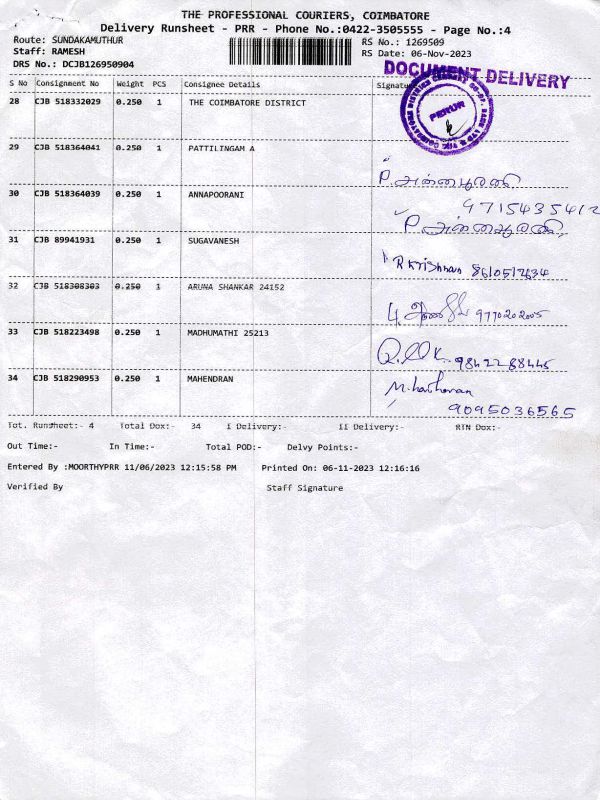 THE PROFESSIONAL COURIERS, COIMBATORE
Delivery Runsheet - PRR - Phone No.:0422-3505555 - Page No.:4
Route: SUNDAKAMUTHUR RS No.: 1269509
Staff: RAMESH RS Date: 06-Nov-2023
DRS No.: DCJB126950904
DOCUMENT DELIVERY
S No Consignment No Weight PCS Consignee Details Signature
28 CJB 518332029 0.250 1 THE COIMBATORE DISTRICT
PERUR
29 CJB 518364041 0.250 1 PATTILINGAM A
P. அன்னபூரணி
30 CJB 518364039 0.250 1 ANNAPOORANI
9715435412
P. அன்னபூரணி
31 CJB 89941931 0.250 1 SUGAVANESH
R Krishnan 8610517634
32 CJB 518308303 0.250 1 ARUNA SHANKAR 24152
9770202005
33 CJB 518223498 0.250 1 MADHUMATHI 25213
9842288445
34 CJB 518290953 0.250 1 MAHENDRAN
9095036565
Tot. Runsheet:- 4 Total Dox:- 34 I Delivery:- II Delivery:- RTN Dox:-
Out Time:- In Time:- Total POD:- Delvy Points:-
Entered By :MOORTHYPRR 11/06/2023 12:15:58 PM Printed On: 06-11-2023 12:16:16
Verified By Staff Signature